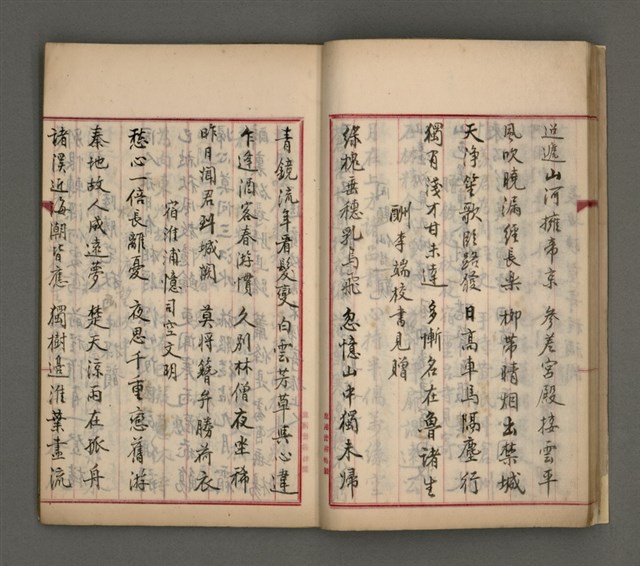 迢遞山河擁帝京 參差宮殿接雲平
風吹曉漏經長樂 柳帶晴烟出禁城
天淨笙歌臨路發 日高車馬隔塵行
獨有淺才甘未達 多慚名在魯諸生
酬李端校書見贈
綠槐垂穗乳烏飛 忽憶山中獨未歸
青鏡流年看髮變 白雲芳草與心違
乍逢酒客春游慣 久別林僧夜坐稀
昨日聞君到城闕 莫將簪弁勝荷衣
宿淮浦憶司空文明
愁心一倍長離憂 夜思千重戀舊游
秦地故人成遠夢 楚天涼雨在孤舟
諸溪近海潮皆應 獨樹邊淮葉盡流